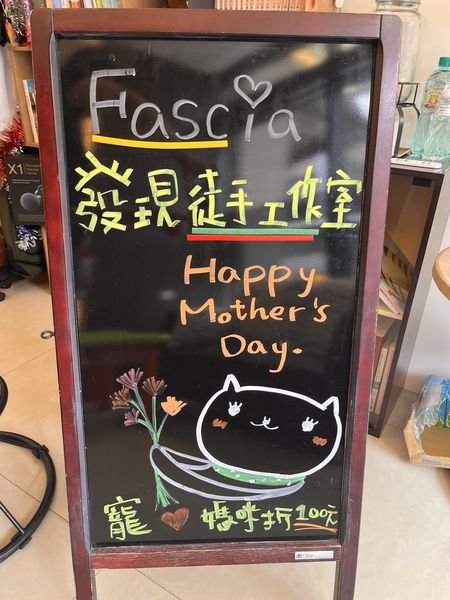 Fascia
發現徒手工作室
Happy
Mother's
Day.
寵 媽咪折100元
X1